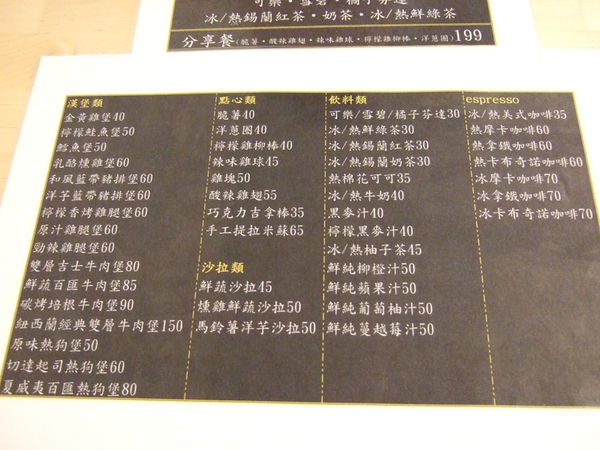 可樂·雪碧·橘子芬達
冰/熱錫蘭紅茶·奶茶·冰/熱鮮綠茶
分享餐(脆薯·酸辣雞翅·辣味雞球·檸檬雞柳棒·洋蔥圈)199
漢堡類
金黃雞堡40
檸檬鮭魚堡50
鱈魚堡50
乳酪燻雞堡60
和風藍帶豬排堡60
洋芋藍帶豬排堡60
檸檬香烤雞腿堡60
原汁雞腿堡60
勁辣雞腿堡60
雙層吉士牛肉堡80
鮮蔬百匯牛肉堡85
碳烤培根牛肉堡90
紐西蘭經典雙層牛肉堡150
原味熱狗堡50
切達起司熱狗堡60
夏威夷百匯熱狗堡80
點心類
脆薯40
洋蔥圈40
檸檬雞柳棒40
辣味雞球45
雞塊50
酸辣雞翅55
巧克力吉拿棒35
手工提拉米蘇65
沙拉類
鮮蔬沙拉45
燻雞鮮蔬沙拉50
馬鈴薯洋芋沙拉50
飲料類
可樂/雪碧/橘子芬達30
冰/熱鮮綠茶30
冰/熱錫蘭紅茶30
冰/熱錫蘭奶茶30
熱棉花可可35
冰/熱牛奶40
黑麥汁40
檸檬黑麥汁40
冰/熱柚子茶45
鮮純柳橙汁50
鮮純蘋果汁50
鮮純葡萄柚汁50
鮮純蔓越莓汁50
espresso
冰/熱美式咖啡35
熱摩卡咖啡60
熱拿鐵咖啡60
熱卡布奇諾咖啡60
冰摩卡咖啡70
冰拿鐵咖啡70
冰卡布奇諾咖啡70